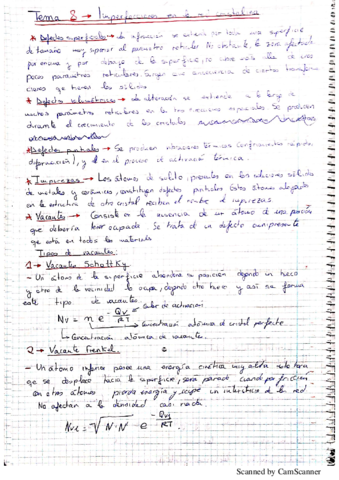 Tema 8 → Imperfecciones en la red cristalina
* Defectos superficiales → la alteración se extiende por toda una superficie
de tamaño muy superior al parámetro reticular. No obstante, la zona afectada
por encima y por debajo de la superficie no tiene más allá de unos
pocos parámetros reticulares.
claves que tienen los sólidos.
* Defectos Volumétricos → la alteración se extiende a lo largo de
muchos parámetros reticulares en las tres direcciones espaciales. Se producen
durante el crecimiento de los cristales
* Defectos puntuales → Se producen vibraciones térmicas (enfriamientos rápidos,
deformación), y en el proceso de activación térmica.
* Impurezas → Los átomos de soluto, presentes en las soluciones sólidas
de metales y cerámicos, constituyen defectos puntuales. Estos átomos alojados
en la estructura de otro cristal reciben el nombre de impurezas.
* Vacante → Consiste en la ausencia de un átomo de una posición
que debería estar ocupada. Se trata de un defecto omnipresente
que está en todos los materiales.
Tipos de vacantes:
1 → Vacantes Schottky
- Un átomo de la superficie abandona su posición dejando un hueco
y otro de la vecindad lo ocupa, dejando otro hueco y así se forma
este tipo de vacantes.
Calor de activación
Nv = n e -Qv/RT
→ Concentración atómica de cristal perfecto
→ Concentración atómica de vacantes.
2 → Vacante Frenkel
- Un átomo interior posee una energía cinética muy alta
que se desplace hacia la superficie, será parado cuando por fricción
con otros átomos pierda energía y ocupe un intersticio de la red.
No afectan a la densidad
Nvc = √N·N e -Qv/RT
Scanned by CamScanner